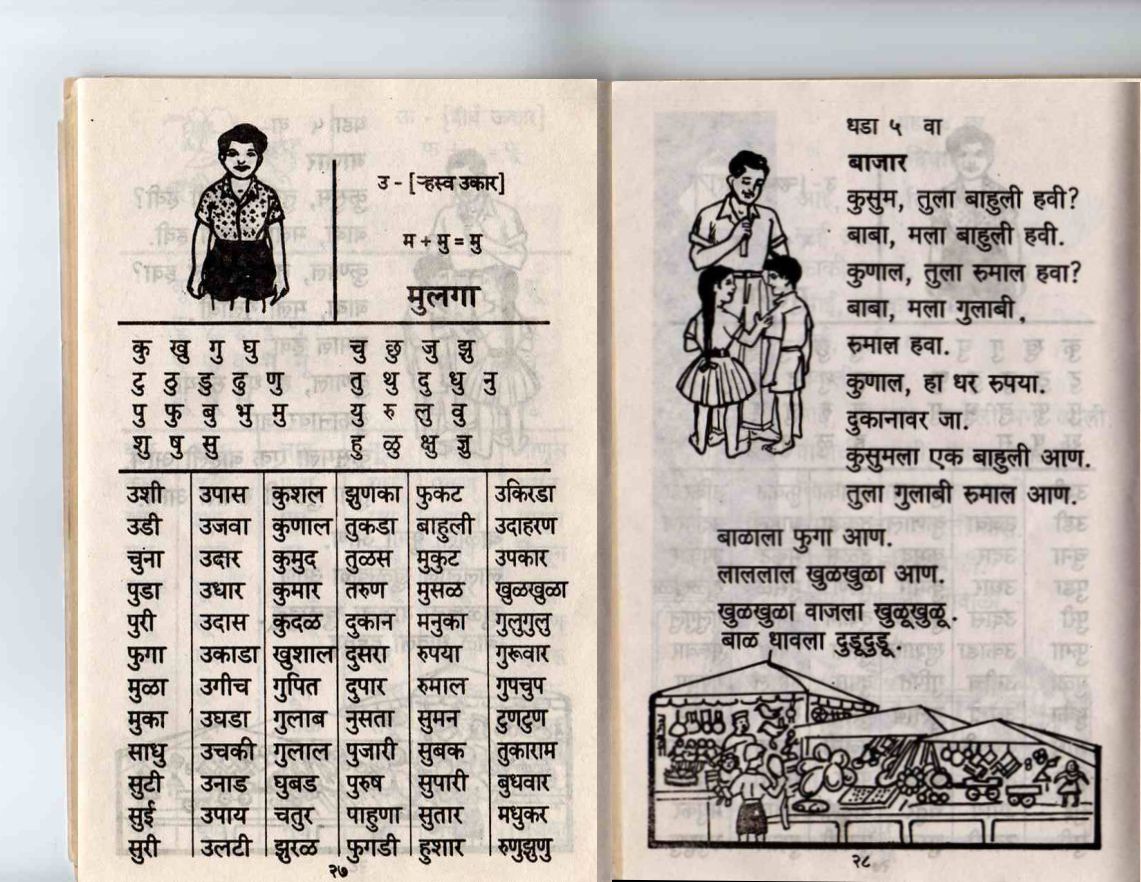 उ - [ऱ्हस्व उकार]
म + मु = मु
मुलगा
कु खु गु घु चु छु जु झु
टु ठु डु ढु णु तु थु दु धु नु
पु फु बु भु मु यु रु लु वु
शु षु सु हु ळु क्षु ज्ञु
उशी उपास कुशल झुणका फुकट उकिरडा
उडी उजवा कुणाल तुकडा बाहुली उदाहरण
चुना उदार कुमुद तुळस मुकुट उपकार
पुडा उधार कुमार तरुण मुसळ खुळखुळा
पुरी उदास कुदळ दुकान मनुका गुलुगुलु
फुगा उकाडा खुशाल दुसरा रुपया गुरूवार
मुळा उगीच गुपित दुपार रुमाल गुपचुप
मुका उघडा गुलाब नुसता सुमन टुणटुण
साधु उचकी गुलाल पुजारी सुबक तुकाराम
सुटी उनाड घुबड पुरुष सुपारी बुधवार
सुई उपाय चतुर पाहुणा सुतार मधुकर
सुरी उलटी झुरळ फुगडी हुशार रुणुझुणु
२७
धडा ५ वा
बाजार
कुसुम, तुला बाहुली हवी?
बाबा, मला बाहुली हवी.
कुणाल, तुला रुमाल हवा?
बाबा, मला गुलाबी.
रुमाल हवा.
कुणाल, हा धर रुपया.
दुकानावर जा.
कुसुमला एक बाहुली आण.
तुला गुलाबी रुमाल आण.
बाळाला फुगा आण.
लाललाल खुळखुळा आण.
खुळखुळा वाजला खुळूखुळू.
बाळ धावला दुडूदुडू.
२८